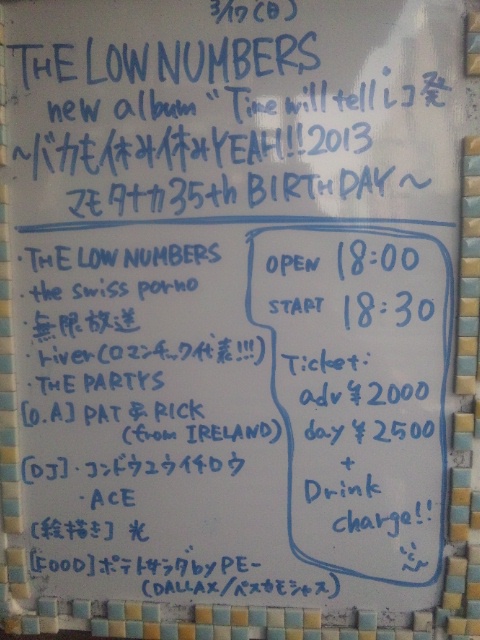 3/17(日)
THE LOW NUMBERS
new album "Time will tell
〜バカも休み休みYEAH!!2013
マモタナカ35th BIRTHDAY〜
・THE LOW NUMBERS
・the swiss porno
・無限放送
・river(ロマンチック代表!!!)
・THE PARTYS
[O.A] PAT & RICK
(from IRELAND)
[DJ]・コンドウユウイチロウ
・ACE
[絵描き] 光
[FOOD]ポテトサラダbyPE-
(DALLAX/ペスカモシャス)
OPEN 18:00
START 18:30
Ticket:
adv ¥2000
day ¥2500
+
Drink
charge!!